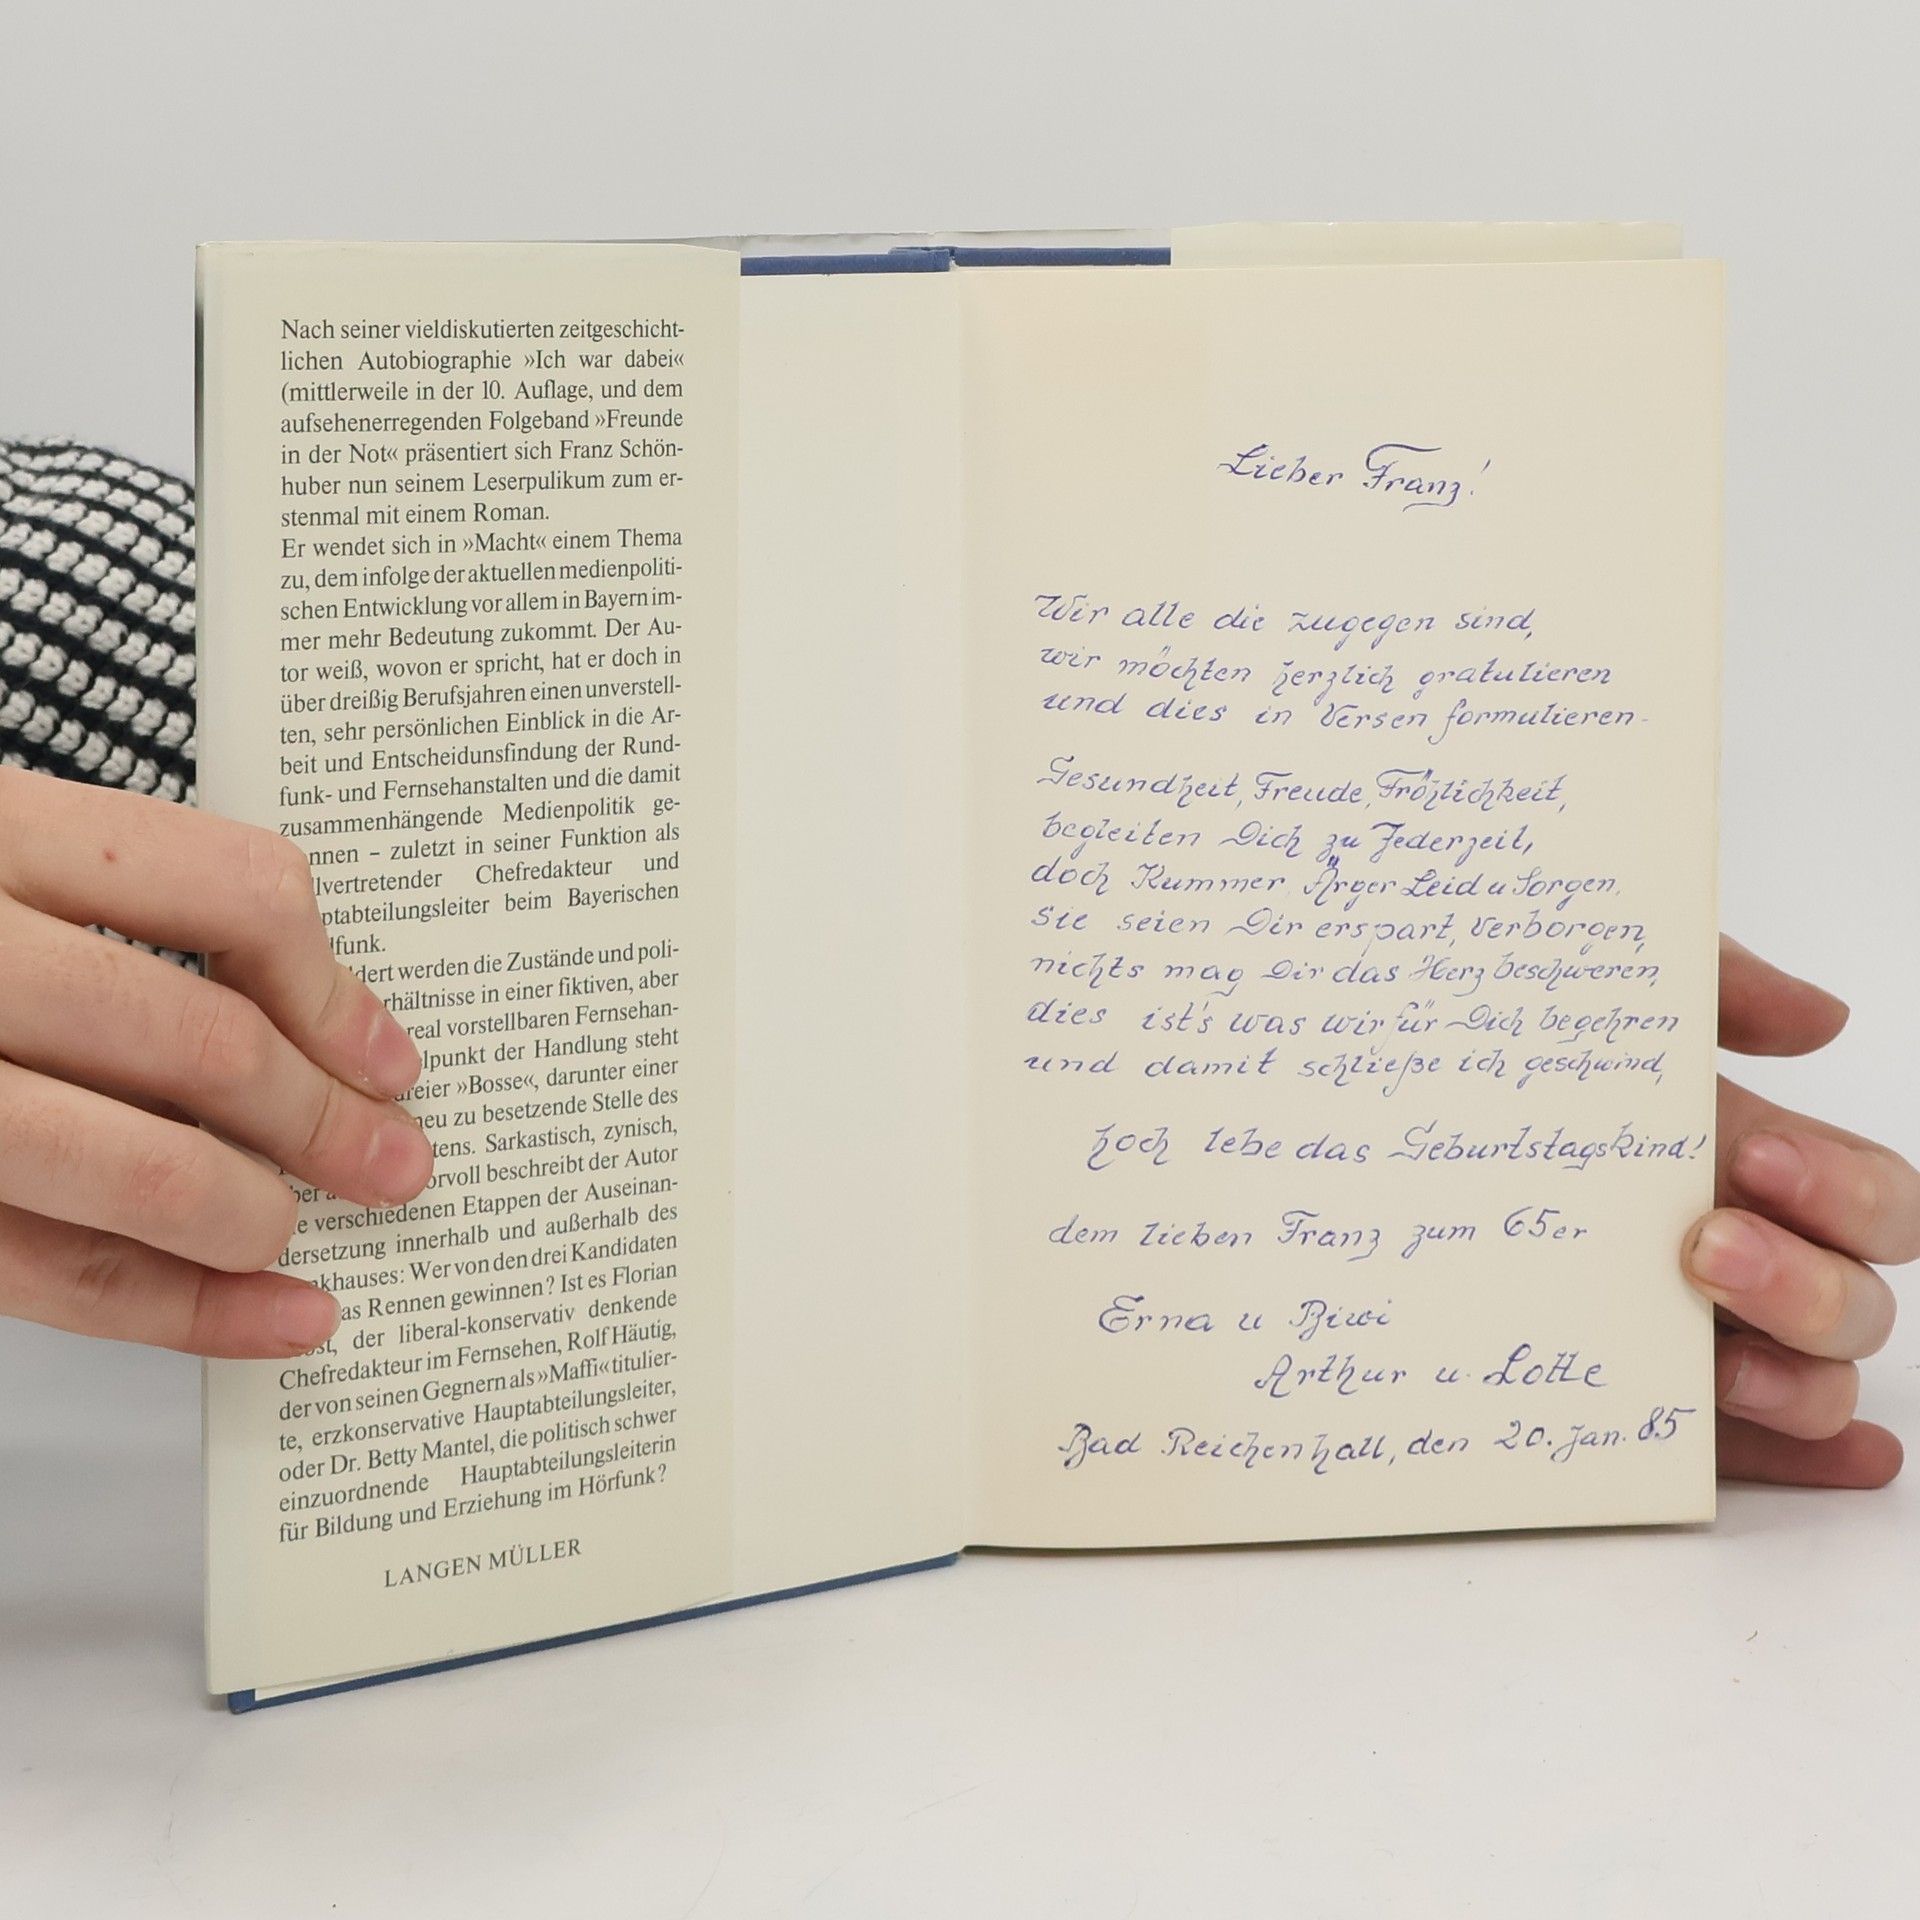 Nach seiner vieldiskutierten zeitgeschicht-
lichen Autobiographie »Ich war dabei«
(mittlerweile in der 10. Auflage, und dem
aufsehenerregenden Folgeband »Freunde
in der Not« präsentiert sich Franz Schön-
huber nun seinem Leserpulikum zum er-
stenmal mit einem Roman.
Er wendet sich in »Macht« einem Thema
zu, dem infolge der aktuellen medienpoliti-
schen Entwicklung vor allem in Bayern im-
mer mehr Bedeutung zukommt. Der Au-
tor weiß, wovon er spricht, hat er doch in
über dreißig Berufsjahren einen unverstell-
ten, sehr persönlichen Einblick in die Ar-
beit und Entscheidunsfindung der Rund-
funk- und Fernsehanstalten und die damit
zusammenhängende Medienpolitik ge-
nnen – zuletzt in seiner Funktion als
llvertretender Chefredakteur und
ptabteilungsleiter beim Bayerischen
dfunk.
dert werden die Zustände und poli-
rhältnisse in einer fiktiven, aber
real vorstellbaren Fernsehan-
lpunkt der Handlung steht
dreier »Bosse«, darunter einer
neu zu besetzende Stelle des
tens. Sarkastisch, zynisch,
ber orvoll beschreibt der Autor
e verschiedenen Etappen der Auseinan-
dersetzung innerhalb und außerhalb des
nkhauses: Wer von den drei Kandidaten
as Rennen gewinnen? Ist es Florian
st, der liberal-konservativ denkende
Chefredakteur im Fernsehen, Rolf Häutig,
der von seinen Gegnern als »Maffi« titulier-
te, erzkonservative Hauptabteilungsleiter,
oder Dr. Betty Mantel, die politisch schwer
einzuordnende Hauptabteilungsleiterin
für Bildung und Erziehung im Hörfunk?
LANGEN MÜLLER
Lieber Franz!
Wir alle die zugegen sind,
wir möchten herzlich gratulieren
und dies in Versen formulieren-
Gesundheit, Freude, Fröhlichkeit,
begleiten Dich zu Jederzeit,
doch Kummer, Ärger Leid u Sorgen,
sie seien Dir erspart, Verborgen,
nichts mag Dir das Herz beschweren,
dies ist's was wir für Dich begehren
und damit schließe ich geschwind,
hoch lebe das Geburtstagskind!
dem lieben Franz zum 65er
Erna u Biwi
Arthur u. Lotte
Bad Reichenhall, den 20. Jan. 85